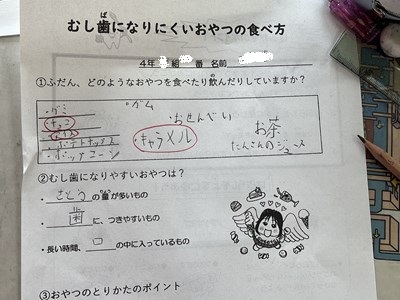 むし歯になりにくいおやつの食べ方
ば
4年 組 番 名前
①ふだん、どのようなおやつを食べたり飲んだりしていますか?
・グミ
・ガム
・おせんべい
・ポテトチップス
・ポップコーン
・キャラメル
お茶
たんさんのジュース
②むし歯になりやすいおやつは?
・さとうの量が多いもの
・歯に、つきやすいもの
・長い時間、口の中に入っているもの
③おやつのとりかたのポイント